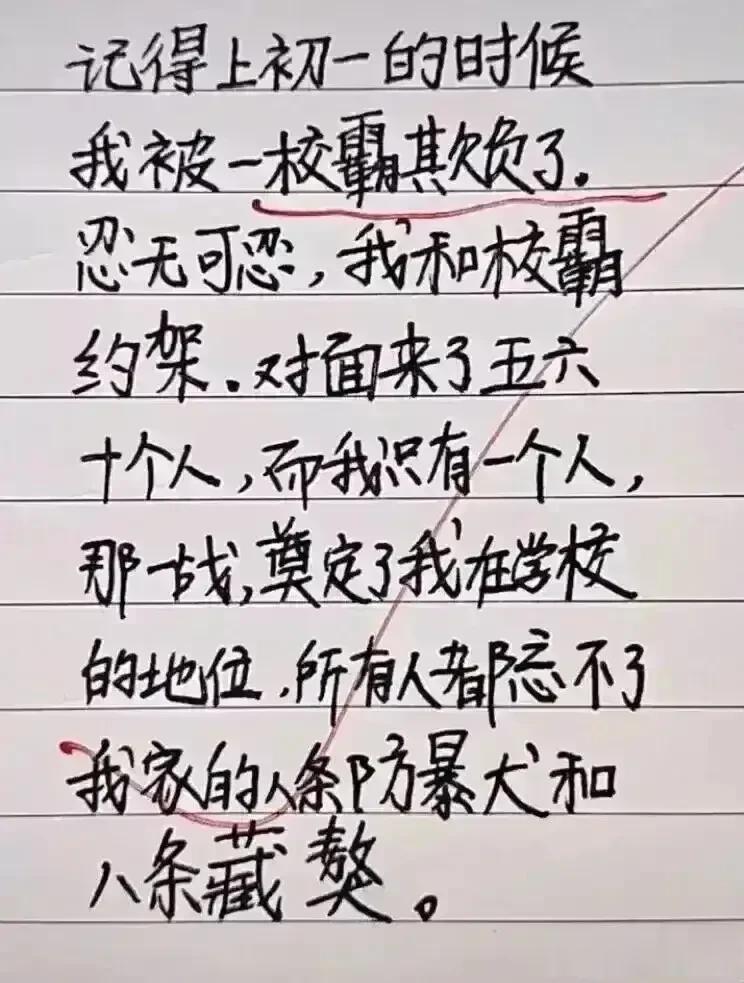 记得上初一的时候
我被一校霸欺负了.
忍无可忍,我和校霸
约架.对面来了五六
十个人,而我只有一个人,
那一战,奠定了我在学校
的地位.所有人都忘不了
我家的八条防暴犬和
八条藏獒。